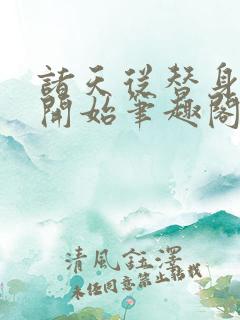 諸天從替身
開始筆趣閣
清風鈺澤
未經同意禁止轉載